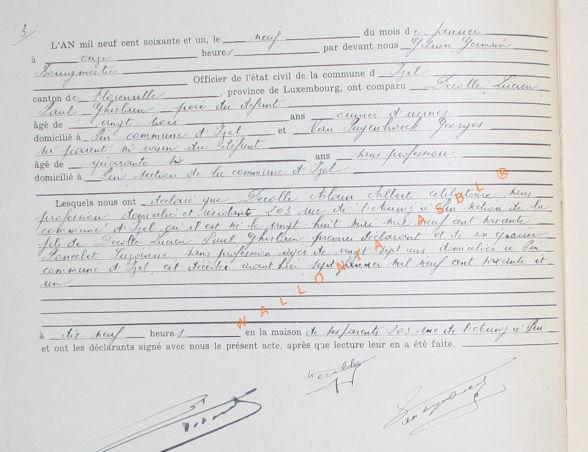 3/
L'AN mil neuf cent soixante et un, le neuf du mois de janvier
à onze heures par devant nous Gilson Germain
Bourgmestre Officier de l'état civil de la commune d'Izel
canton de Florenville, province de Luxembourg, ont comparu Decolle Lucien
Paul Ghislain père du défunt
âgé de vingt trois ans ouvrier d'usines
domicilié à Pin commune d'Izel et Van Georges
ni parent ni voisin du défunt
âgé de quarante ans sans profession
domicilié à Pin section de la commune d'Izel
Lesquels nous ont déclaré que Decolle Alain Albert célibataire sans
profession domicilié et résidant 203 rue de à Pin section de la
commune d'Izel qu'il est né le vingt huit mil neuf cent soixante
fils de Decolle Lucien Paul Ghislain premier déclarant et de
Poncelet Suzanne sans profession âgée de vingt sept ans domiciliée à Pin
commune d'Izel, est décédé avant hier sept janvier mil neuf cent soixante et
un
à dix neuf heures en la maison de ses parents 203 rue de à Pin
et ont les déclarants signé avec nous le présent acte, après que lecture leur en a été faite.
WALLONIA ASBL ®
Decolle